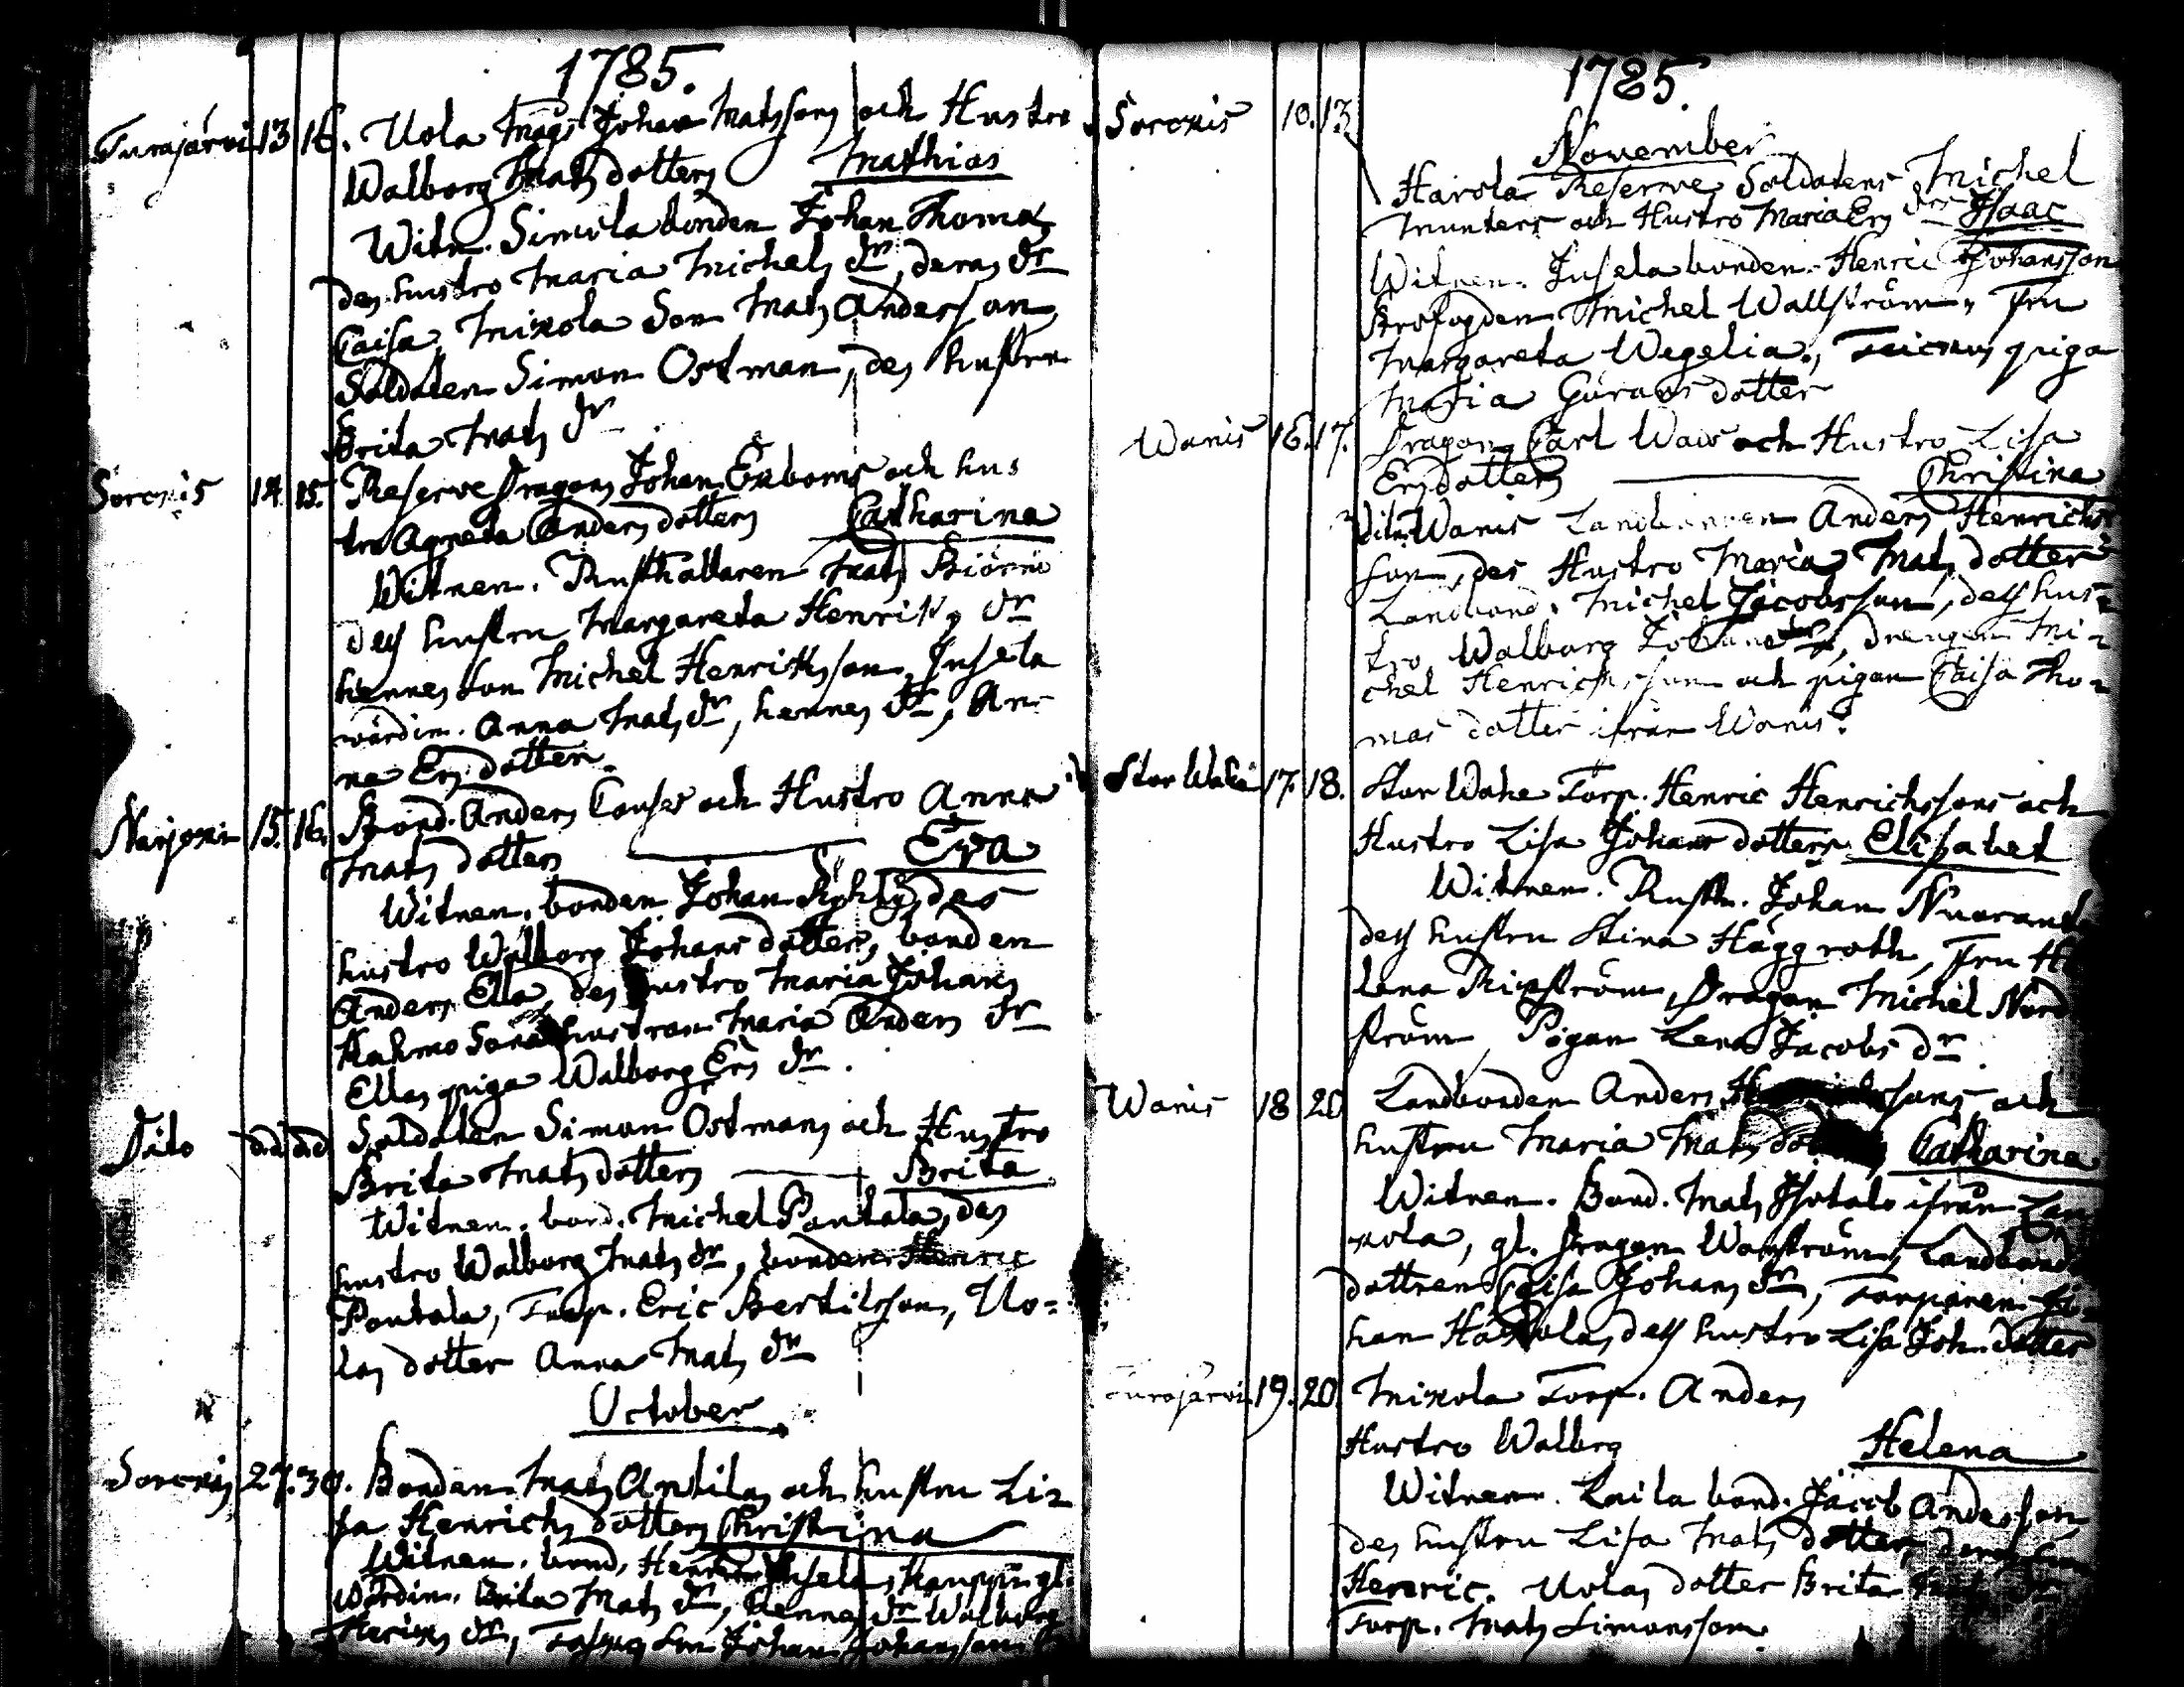 1785.
Turajärvi 13 16. Uola Mågs Johan Matssons och Hustro
Walborg Mats dotters Mathias
Witn. Simola bonden Johan Thomas,
des hustro Maria Michels dr, deras dr
Caisa, Mixola Son Mats Andersson,
Soldaten Simon Ostman, des hustru
Brita Mats dr
Sorcxis 14. 15. Reserve Dragons Johan Exboms och hus
tro Agneta Anders dotters Catharina
Witnen. Rusthållaren Mats Biörni
dess hustru Margareta Henriks dr
hennes son Michel Henriksson, Jusela
wärdin. Anna Mats dr, hennes dr, An-
na Ers dotter.
Narjoxi 15. 16. Bond. Anders Couses och Hustro Anna
Mats dotters Eva
Witnen. bonden Johan des
hustro Walborg Johans dotter, bonden
Anders Ella, des hustro Maria Johans
Kahmo hustron Maria Anders dr
Ellas piga Walborg Ers dr.
Dito d:o d:o Soldaten Simon Ostmans och Hustro
Brita Mats dotters Brita
Witnen. bond. Michel Pontala, des
hustro Walborg Mats dr, bonden Henric
Pontala, Torp. Eric Bertilsson, Uo-
las dotter Anna Mats dr
October
Sorcxis 27. 30. Bonden Mats Antilas och hustru Li-
sa Henrichs dotters Christina
Witnen. bond. Henric Jusela, Kauppi gl.
Wärdin. Brita Mats dr, hennes dr Walborg
Henrics dr, son Johan Johansson
1785.
November
Sorcxis 10. 13. Harola Reserve Soldatens Michel
Munters och Hustro Maria Ers drs Isaac
Witnen. Jusela bonden Henric Johansson
Brofogden Michel Wallström, Fru
Margareta Wegelia, piga
Maria Görans dotter
Wanis 16. 17. Dragon Carl Waws och Hustro Lisa
Ersdotters Christina
Witn. Wanis Landbonden Anders Henrichs-
son, des Hustro Maria Mats dotter
Landbond. Michel Jacobsson, dess hus-
tro Walborg Johans dr, drengen Mi-
chel Henrichsson och pigan Caisa Tho-
mas dotter ifrån Wanis.
Stor Wahe 17. 18. Stor Wahe Torp. Henric Henrichssons och
Hustro Lisa Johans dotters Elisabet
Witnen. Rusth. Johan
dess hustru Stina Häggroth, Fru He
lena Ringström, Dragon Michel Nord
ström Pigan Lena Jacobs dr.
Wanis 18 20 Landbonden Anders sons och
hustru Maria Mats Catharina
Witnen. Bond. Mats Isotalo ifrån Lau
xola, gl. Dragon Landbond
dottren Caisa Johans dr, Torparen Jo-
han Harola, dess hustro Lisa Joh. dotter
Turajärvi. 19. 20 Mixola Torp. Anders
Hustro Walbrg Helena
Witnen. Laila bond. Jacob Andersson
des hustru Lisa Mats dotter,
Henric. Uolas dotter Brita
Torp. Mats Simonsson.